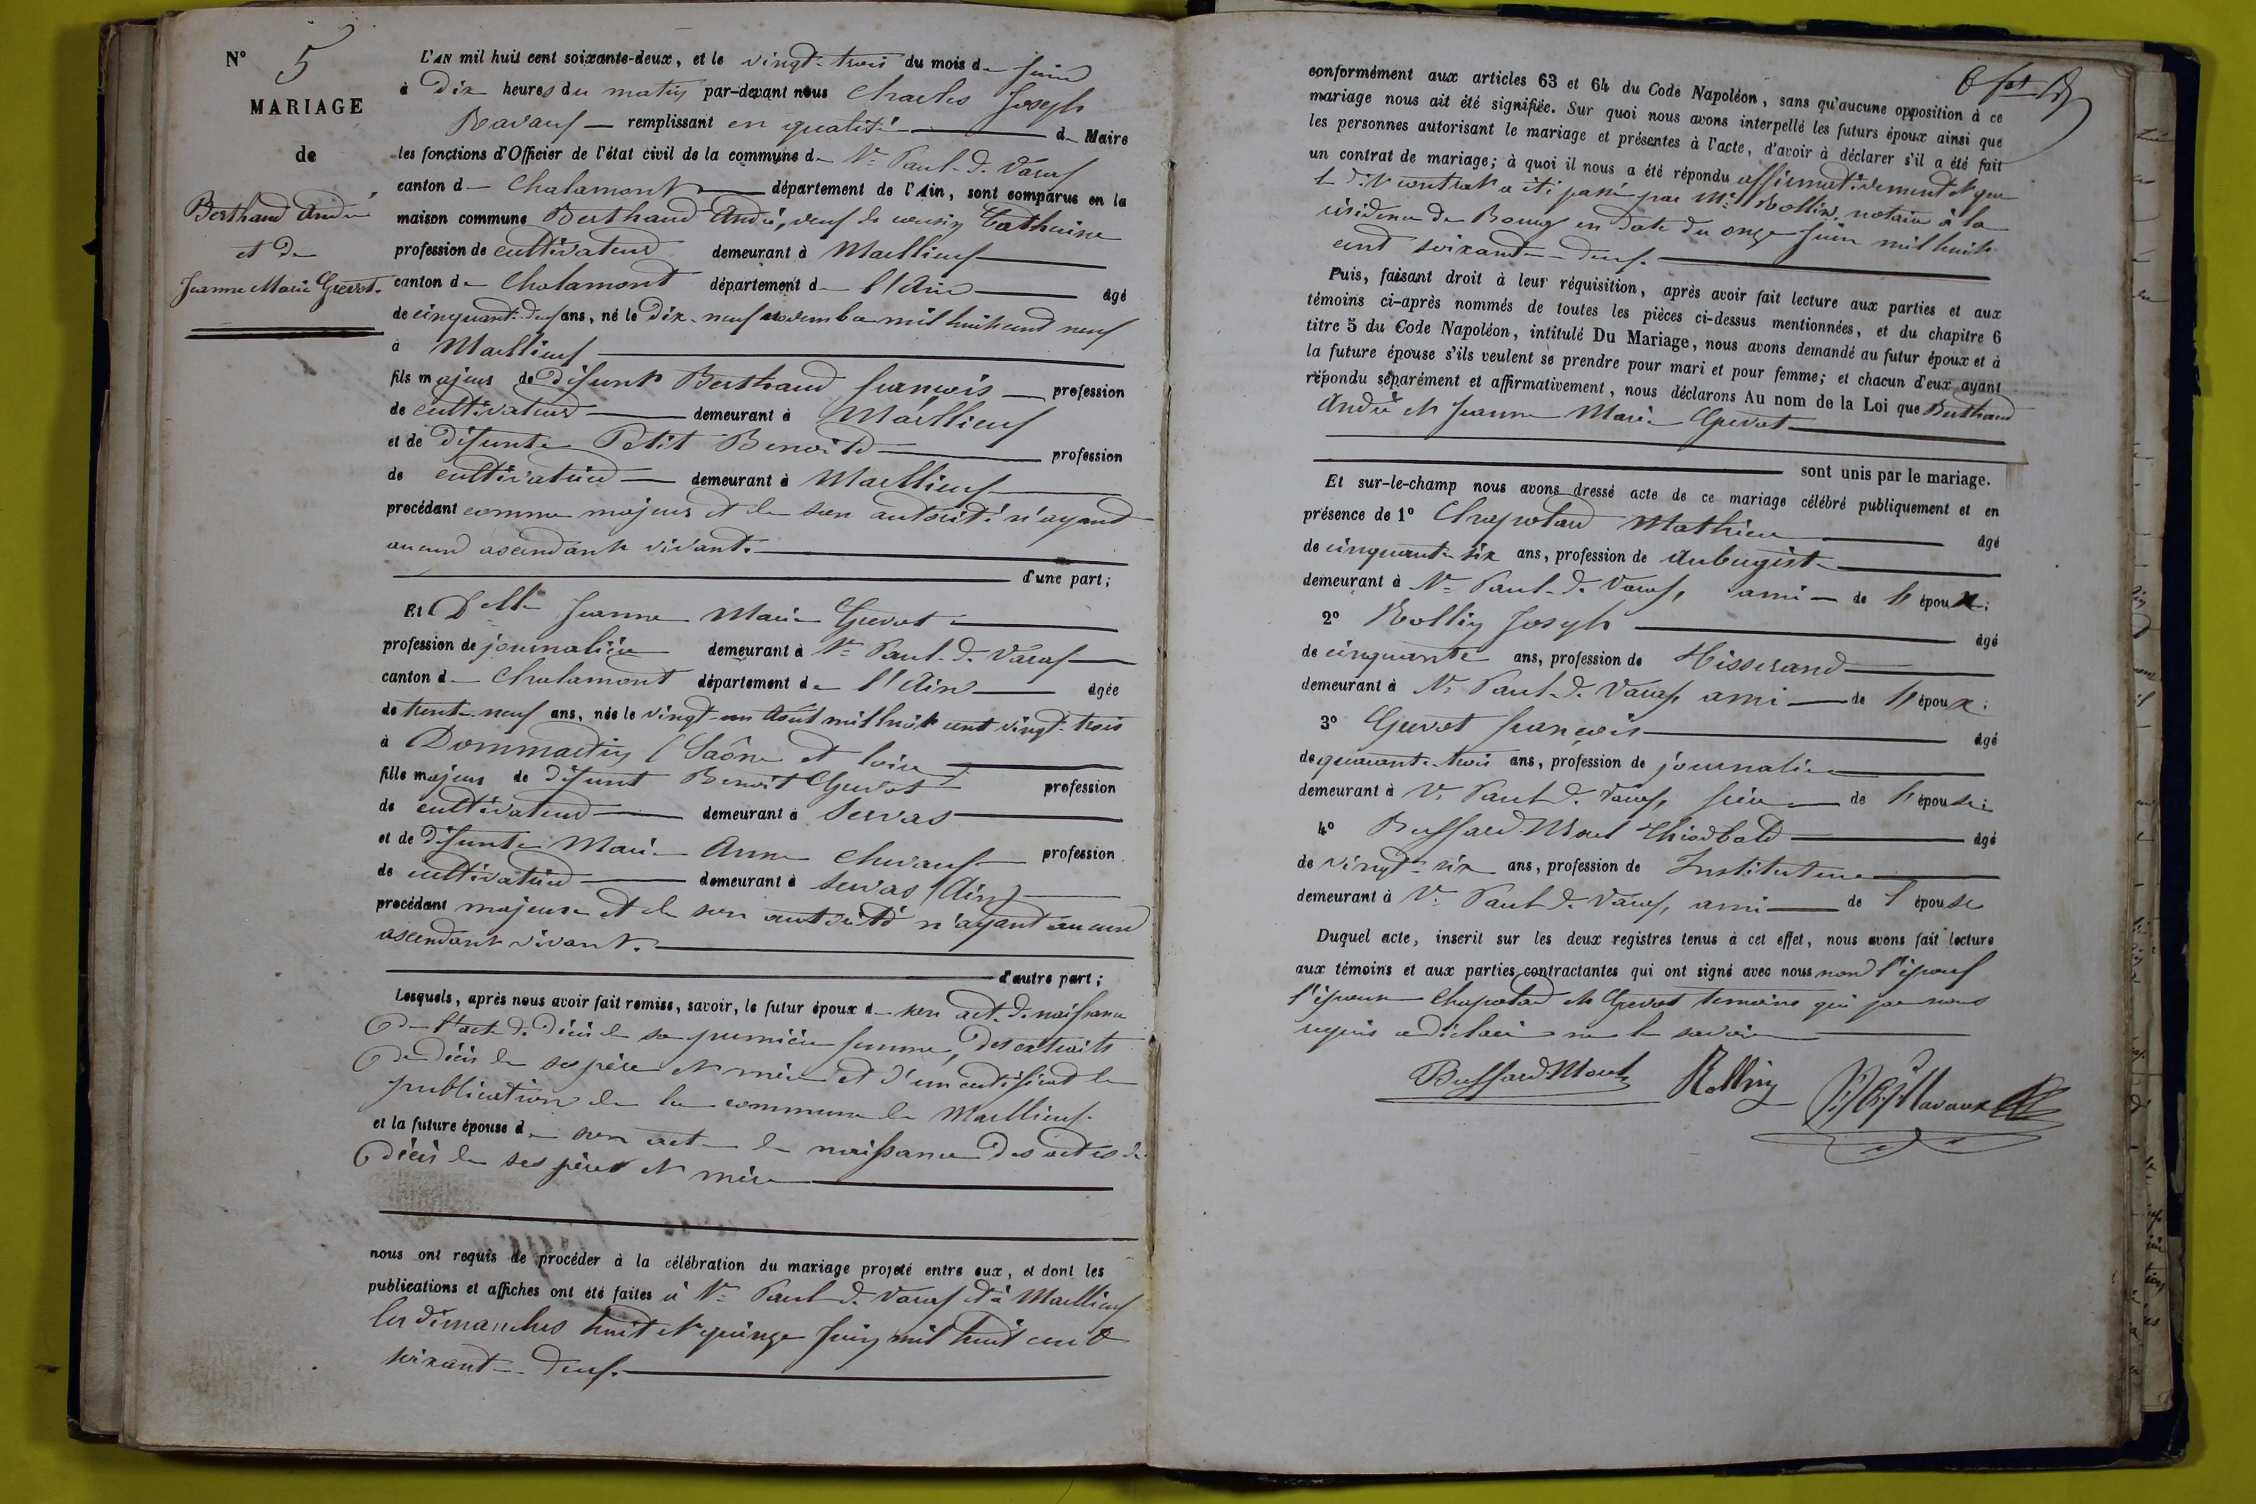 N° 5
MARIAGE
de
Berthaud André
et de
Jeanne Marie Grevot.
L'AN mil huit cent soixante-deux, et le vingt-trois du mois de juin
à dix heures du matin par-devant nous Charles Joseph
Ravaux — remplissant en qualité de Maire
les fonctions d'Officier de l'état civil de la commune de St Paul-de-Varax
canton de Chalamont département de l'Ain, sont comparus en la
maison commune Berthaud André, veuf de cousin Catherine
profession de cultivateur demeurant à Marlieux
canton de Chalamont département de l'Ain âgé
de cinquante-deux ans, né le dix-neuf novembre mil huit cent neuf
à Marlieux
fils majeur de défunt Berthaud françois profession
de cultivateur demeurant à Marlieux
et de défunte Petit Benoite profession
de cultivatrice demeurant à Marlieux
procédant comme majeur et de son autorité n'ayant
aucun ascendant vivant.
d'une part;
Et Delle Jeanne Marie Grevot
profession de journalière demeurant à St Paul-de-Varax
canton de Chalamont département de l'Ain âgée
de trente-neuf ans, née le vingt-un Août mil huit cent vingt-trois
à Dommartin (Saône et Loire)
fille majeure de défunt Benoit Grevot profession
de cultivateur demeurant à Servas
et de défunte Marie Anne profession
de cultivatrice demeurant à Servas (Ain)
procédant majeure et de son autorité n'ayant aucun
ascendant vivant.
d'autre part;
Lesquels, après nous avoir fait remise, savoir, le futur époux de son acte de naissance
de l'acte de décès de sa première femme, des extraits
de décès de ses père et mère et d'un certificat de
publication de la commune de Marlieux.
et la future épouse de son acte de naissance des actes de
décès de ses père et mère
nous ont requis de procéder à la célébration du mariage projeté entre eux, et dont les
publications et affiches ont été faites à St Paul de Varax et à Marlieux
les dimanches huit et quinze juin mil huit cent
soixante-deux.
conformément aux articles 63 et 64 du Code Napoléon, sans qu'aucune opposition à ce
mariage nous ait été signifiée. Sur quoi nous avons interpellé les futurs époux ainsi que
les personnes autorisant le mariage et présentes à l'acte, d'avoir à déclarer s'il a été fait
un contrat de mariage; à quoi il nous a été répondu affirmativement et que
le dit contrat a été passé par Me Rollin, notaire à la
résidence de Bourg en date du onze juin mil huit
cent soixante-deux.
Puis, faisant droit à leur réquisition, après avoir fait lecture aux parties et aux
témoins ci-après nommés de toutes les pièces ci-dessus mentionnées, et du chapitre 6
titre 5 du Code Napoléon, intitulé Du Mariage, nous avons demandé au futur époux et à
la future épouse s'ils veulent se prendre pour mari et pour femme; et chacun d'eux ayant
répondu séparément et affirmativement, nous déclarons Au nom de la Loi que Berthaud
André et Jeanne Marie Grevot
sont unis par le mariage.
Et sur-le-champ nous avons dressé acte de ce mariage célébré publiquement et en
présence de 1° Chapotard Mathieu âgé
de cinquante-six ans, profession de Aubergiste
demeurant à St Paul-de-Varax, ami de l'époux;
2° Rollin Joseph âgé
de cinquante ans, profession de Tisserand
demeurant à St Paul-de-Varax ami de l'époux;
3° Grevot françois âgé
de quarante-trois ans, profession de journalier
demeurant à St Paul de Varax, frère de l'épouse;
4° Buffard-Morel Thiodbald âgé
de vingt-six ans, profession de Instituteur
demeurant à St Paul de Varax, ami de l'épouse
Duquel acte, inscrit sur les deux registres tenus à cet effet, nous avons fait lecture
aux témoins et aux parties contractantes qui ont signé avec nous non l'époux
l'épouse Chapotard et Grevot témoins qui par nous
requis a déclaré ne le savoir
Buffard-Morel Rollin Ravaux